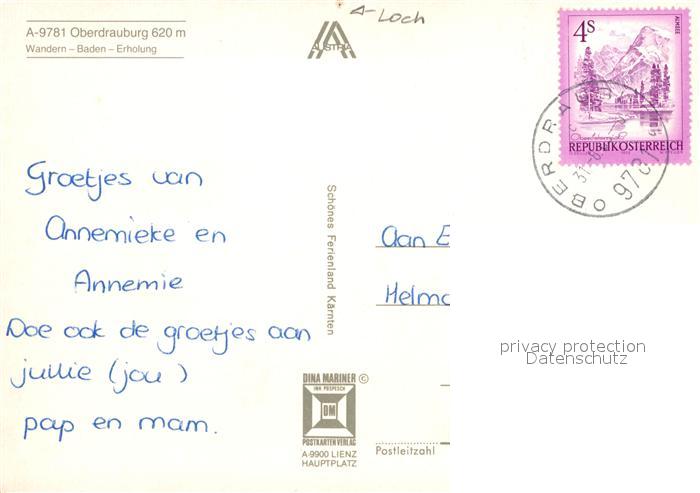 A-9781 Oberdrauburg 620 m
Wandern – Baden – Erholung
AUSTRIA
A-Loch
4S
ALMSEE
REPUBLIK ÖSTERREICH
OBERDRAUBURG
9781
Groetjes van
Annemieke en
Annemie
Doe ook de groetjes aan
jullie (jou)
pap en mam.
Schönes Ferienland Kärnten
Aan E
Helmo
privacy protection
Datenschutz
DINA MARINER ©
INH POSPESCH
DM
POSTKARTENVERLAG
A-9900 LIENZ
HAUPTPLATZ
Postleitzahl